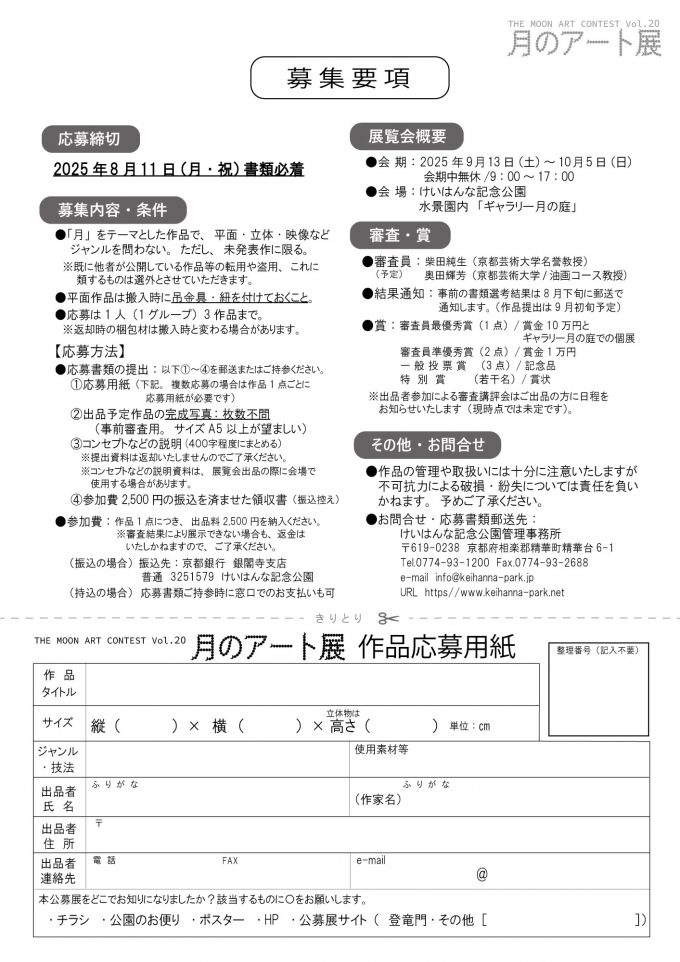 THE MOON ART CONTEST Vol.20
月のアート展
募集要項
応募締切
2025年8月11日(月・祝)書類必着
募集内容・条件
●「月」をテーマとした作品で、平面・立体・映像など
ジャンルを問わない。ただし、未発表作に限る。
※既に他者が公開している作品等の転用や盗用、これに
類するものは選外とさせていただきます。
●平面作品は搬入時に吊金具・紐を付けておくこと。
●応募は1人(1グループ)3作品まで。
※返却時の梱包材は搬入時と変わる場合があります。
【応募方法】
●応募書類の提出：以下①～④を郵送またはご持参ください。
①応募用紙(下記。複数応募の場合は作品1点ごとに
応募用紙が必要です)
②出品予定作品の完成写真：枚数不問
(事前審査用。サイズA5以上が望ましい)
③コンセプトなどの説明(400字程度にまとめる)
※提出資料は返却いたしませんのでご了承ください。
※コンセプトなどの説明資料は、展覧会出品の際に会場で
使用する場合があります。
④参加費2,500円の振込を済ませた領収書(振込控え)
●参加費：作品1点につき、出品料2,500円を納入ください。
※審査結果により展示できない場合も、返金は
いたしかねますので、ご了承ください。
(振込の場合) 振込先：京都銀行 銀閣寺支店
普通 3251579 けいはんな記念公園
(持込の場合) 応募書類ご持参時に窓口でのお支払いも可
展覧会概要
●会期：2025年9月13日(土)～10月5日(日)
会期中無休/9：00～17：00
●会場：けいはんな記念公園
水景園内「ギャラリー月の庭」
審査・賞
●審査員：柴田純生(京都芸術大学名誉教授)
(予定) 奥田輝芳(京都芸術大学/油画コース教授)
●結果通知：事前の書類選考結果は8月下旬に郵送で
通知します。(作品提出は9月初旬予定)
●賞：審査員最優秀賞(1点)/賞金10万円と
ギャラリー月の庭での個展
審査員準優秀賞(2点)/賞金1万円
一般投票賞 (3点)/記念品
特別賞 (若干名)/賞状
※出品者参加による審査講評会はご出品の方に日程を
お知らせいたします(現時点では未定です)。
その他・お問合せ
●作品の管理や取扱いには十分に注意いたしますが
不可抗力による破損・紛失については責任を負い
かねます。予めご了承ください。
●お問合せ・応募書類郵送先：
けいはんな記念公園管理事務所
〒619-0238 京都府相楽郡精華町精華台6-1
Tel.0774-93-1200 Fax.0774-93-2688
e-mail info@keihanna-park.jp
URL https//www.keihanna-park.net
きりとり
THE MOON ART CONTEST Vol.20 月のアート展 作品応募用紙
整理番号(記入不要)
作品
タイトル
サイズ
縦( )× 横( )× 立体物は高さ( ) 単位：㎝
ジャンル
・技法
使用素材等
出品者
氏名
ふりがな
ふりがな
(作家名)
出品者
住所
〒
出品者
連絡先
電話 FAX
e-mail
@
本公募展をどこでお知りになりましたか？該当するものに○をお願いします。
・チラシ ・公園のお便り ・ポスター ・HP ・公募展サイト( 登竜門・その他[ ])